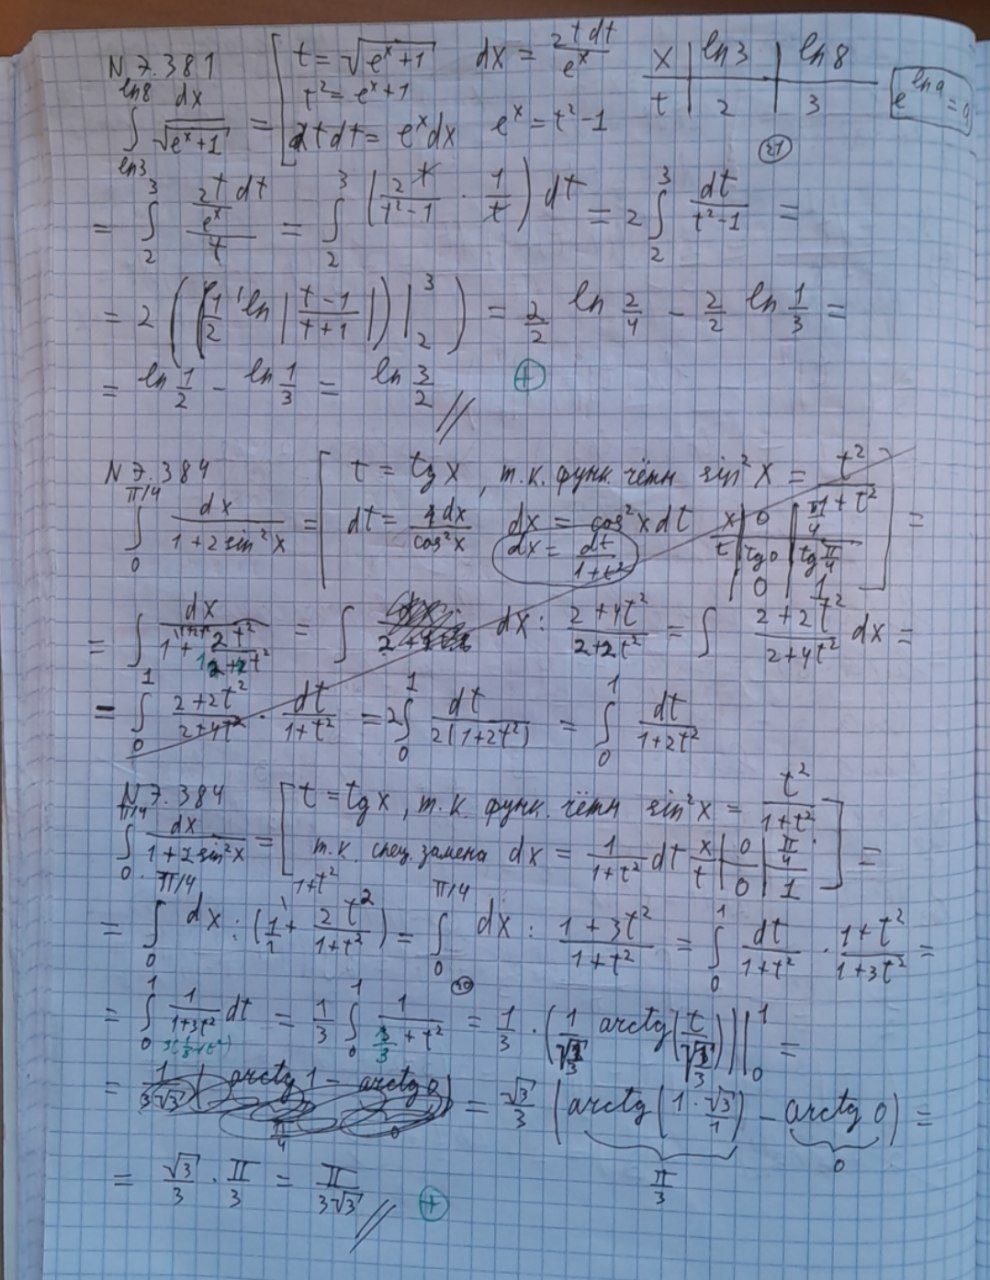 N 7.381
∫_{ln3}^{ln8} dx/√(eˣ+1) = [ t = √(eˣ+1)   dx = 2t dt/eˣ   x | ln3 | ln8
t² = eˣ+1   t | 2 | 3   e^{ln a} = a
2tdt = eˣdx   eˣ = t²-1
= ∫_2^3 (2t/eˣ dt)/t = ∫_2^3 (2t/(t²-1) · 1/t) dt = 2∫_2^3 dt/(t²-1) =
= 2((1/2 ln|(t-1)/(t+1)|)|_2^3) = 2/2 ln 2/4 - 2/2 ln 1/3 =
= ln 1/2 - ln 1/3 = ln 3/2 //   +
N 7.384
∫_0^{π/4} dx/(1+2sin²x) = [ t = tg x, т.к. функ. чётн sin²x = t²/(1+t²)
dt = dx/cos²x   dx = cos²x dt   x | 0 | π/4
dx = dt/(1+t²)   t | tg 0 | tg π/4
0 | 1 ] =
= ∫ dx/(1 + 2t²/(1+t²)) = ∫ dx : (2+4t²)/(2+2t²) = ∫ (2+2t²)/(2+4t²) dx =
= ∫_0^1 (2+2t²)/(2+4t²) · dt/(1+t²) = 2∫_0^1 dt/(2(1+2t²)) = ∫_0^1 dt/(1+2t²)
N 7.384
∫_0^{π/4} dx/(1+2sin²x) = [ t = tg x, т.к. функ. чётн sin²x = t²/(1+t²)
т.к. спец. замена dx = 1/(1+t²) dt   x | 0 | π/4
t | 0 | 1 ] =
= ∫_0^{π/4} dx : (1/1 + 2t²/(1+t²)) = ∫_0^{π/4} dx : (1+3t²)/(1+t²) = ∫_0^1 dt/(1+t²) · (1+t²)/(1+3t²) =
= ∫_0^1 1/(1+3t²) dt = 1/3 ∫_0^1 1/(1/3 + t²) = 1/3 · (1/√(1/3) arctg(t/√(1/3)))|_0^1 =
= √3/3 (arctg(1·√3/1) - arctg 0) =
π/3   0
= √3/3 · π/3 = π/(3√3) //   +